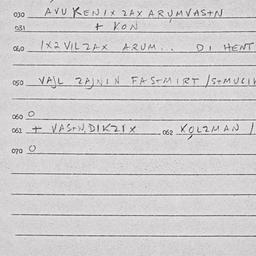 030 AVU KENIX ZAX ARUMVAS+N
031 + KON
040 1X2 VILZAX ARUM.. DI HENT
050 VAJL ZAJNIN FAS+MIRT /S+MUCIK
060 O
061 + VAS+N,DIKZIX 062 KOLZMAN /
070 O